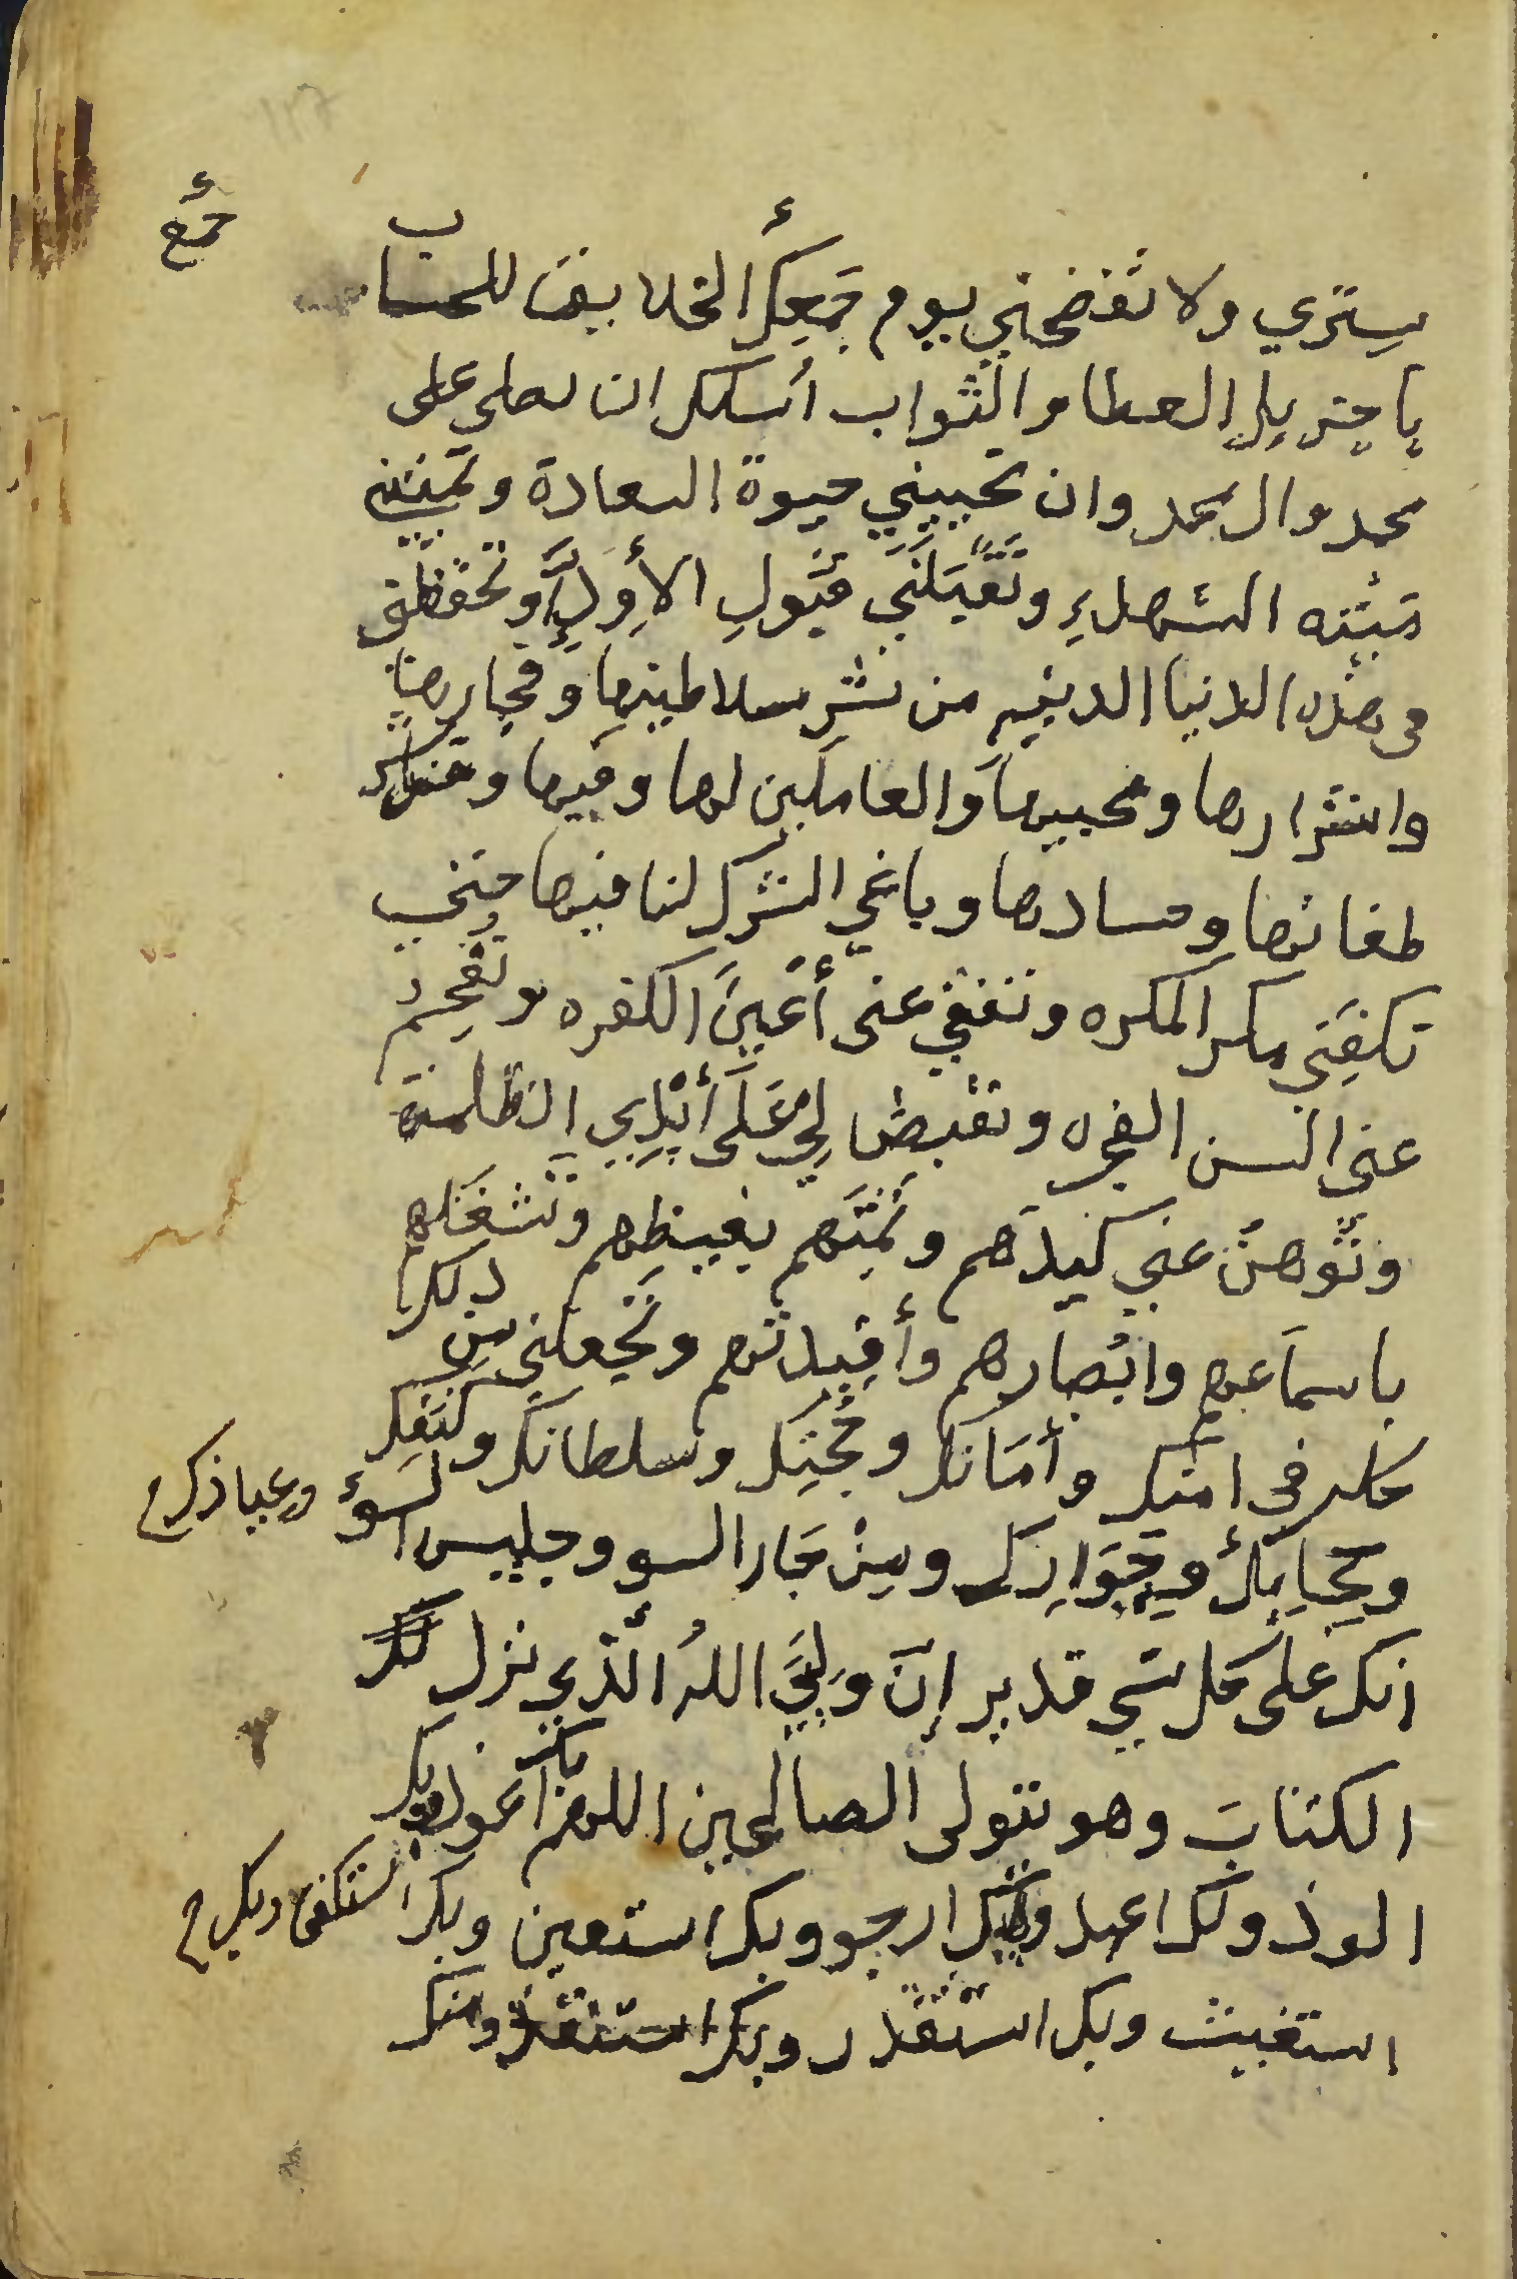 جمع
سِتري ولا تفضحني يوم جَمعِكَ الخلايق للحساب
يا جزيل العطا والثواب أسلك ان تصلي على
محمد وال محمد وان تحييني حيوة السعادة وتميتني
ميتة الشهداءِ وتَقبَلَني قبُولِ الأوِدّاءِ وتحفظني
في هذه الدنيا الدنيه من شر سلاطينها وفجارها
واشرارها ومحبيها والعاملين لها وفيها وقني شر
طغاتها وحسادها وباغي الشرك لنا فيها حتى
تكفِيَني مكر المكره وتفقي عني أعْيُنَ الكفره وتفحِم
عني السن الفجره وتقبض لي عَلَى أيْدِي الظلمة
وتوهن عني كيدَهم وتميتهم بغيظهم وتشغلهم
باسماعهم وابْصارهم وأفيدتهم وتجعلني من
ذلك كله في امنك وأمانك وحجْزِك وسلطانك وكَنَفِك
وحجابك وجِوَارِك ومِنْ جَار السو وجليس السوء
وعياذك
انك على كل شي قدير إنَّ وَلِيَّ اللهُ الَّذي نزل
الكتابَ وهو يتولى الصالحين اللهم بك اعوذ وبك
الوذ ولك اعبد واياك ارجو وبك استعين وبك استكفي وبك
استغيث وبك استقدر وبك استنقذ ومنك